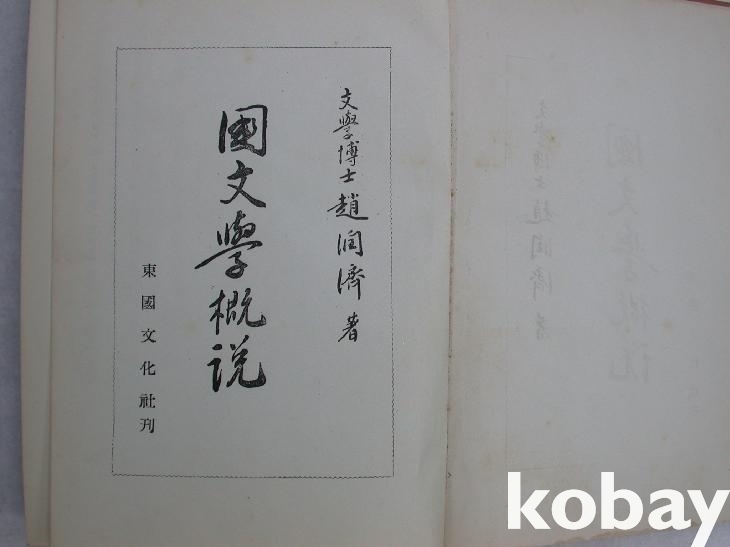 文學博士 趙潤濟 著
國文學槪說
東國文化社刊
kobay